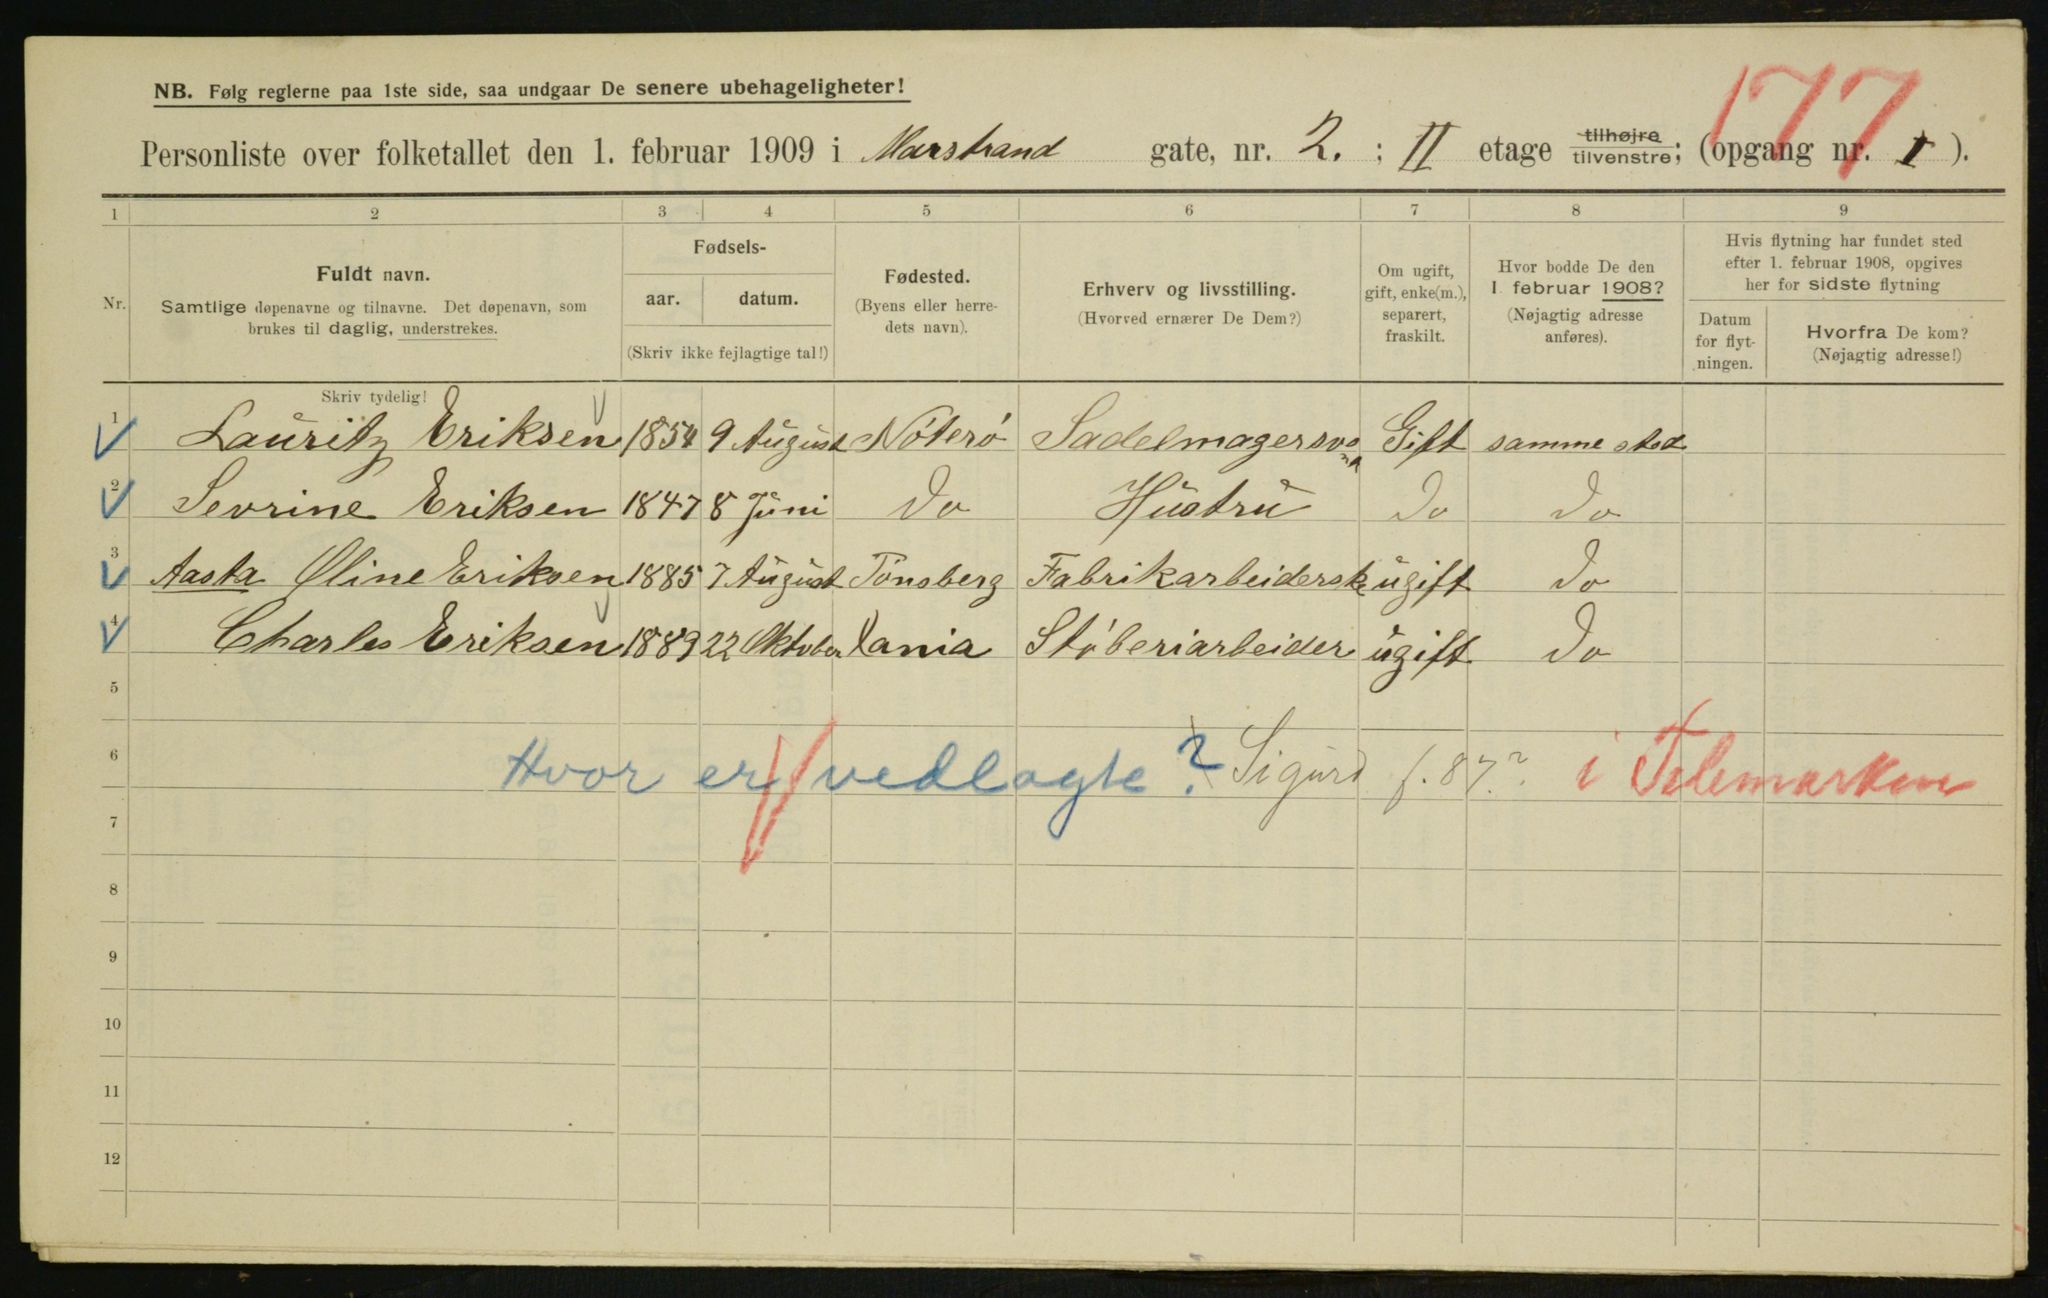 177
NB. Følg reglerne paa 1ste side, saa undgaar De senere ubehageligheter!
Personliste over folketallet den 1. februar 1909 i Marstrand gate, nr. 2. ; II etage tilhøjre tilvenstre; (opgang nr. 1 ).
1 2 3 4 5 6 7 8 9
Nr.
Fuldt navn.
Samtlige døpenavne og tilnavne. Det døpenavn, som
brukes til daglig, understrekes.
Fødsels-
aar. datum.
(Skriv ikke fejlagtige tal!)
Fødested.
(Byens eller herre-
dets navn).
Erhverv og livsstilling.
(Hvorved ernærer De Dem?)
Om ugift,
gift, enke(m.),
separert,
fraskilt.
Hvor bodde De den
1 februar 1908?
(Nøjagtig adresse
anføres).
Hvis flytning har fundet sted
efter 1. februar 1908, opgives
her for sidste flytning
Datum
for flyt-
ningen.
Hvorfra De kom?
(Nøjagtig adresse!)
Skriv tydelig!
1 Lauritz Eriksen 1854 9 August Nóteró Sadelmagersv Gift samme sted
2 Sevrine Eriksen 1847 8 Juni Do Hustru Do Do
3 Aasta Oline Eriksen 1885 7 August Tónsberg Fabrikarbeiderske ugift Do
4 Charles Eriksen 1889 22 Oktober Kania Stóberiarbeider ugift Do
5
6 Hvor er vedlagte? Sigurd f. 87.? i Telemarken
7
8
9
10
11
12